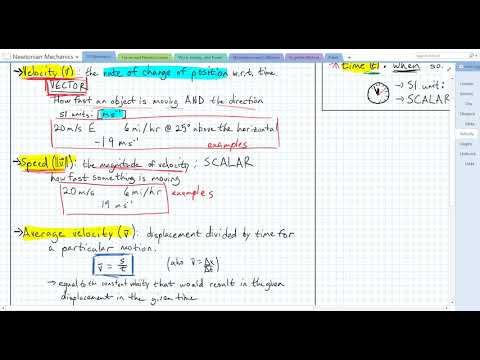 Newtonian Mechanics
→ Velocity (v⃗): the rate of change of position w.r.t. time
VECTOR
How fast an object is moving AND the direction
SI units: ms⁻¹
20 m/s E 6 mi/hr @ 25° above the horizontal
-19 ms⁻¹
examples
→ Speed (||v⃗||): the magnitude of velocity; SCALAR
how fast something is moving
20 m/s 6 mi/hr
19 ms⁻¹
examples
→ Average velocity (v̄): displacement divided by time for
a particular motion.
v̄ = s/t (also v̄ = Δx/Δt)
→ equal to the constant velocity that would result in the given
displacement in the given time
* time (t): when so
→ SI unit:
→ SCALAR
Velocity